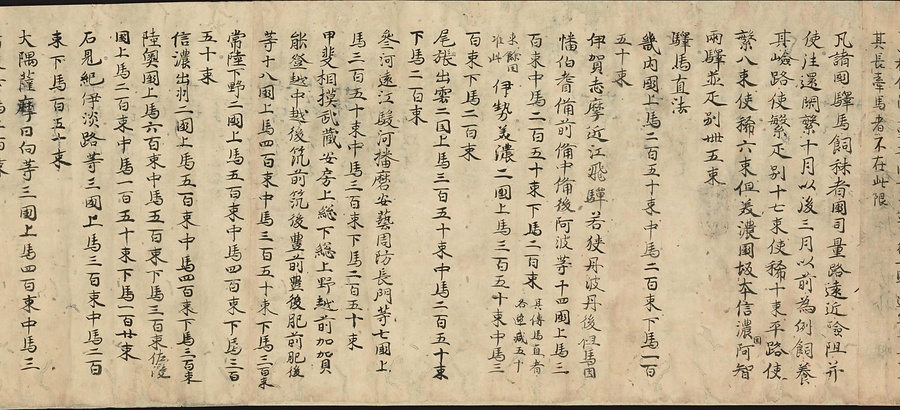 其長牽馬者不在此限
凡諸國驛馬飼秣者國司量路遠近險阻并
使往還閑繁十月以後三月以前為例飼養
其嶮路使繁疋別十七束使稀十束平路使
繁八束使稀六束但美濃國坂本信濃國阿智
兩驛並疋別卅五束
驛馬直法
畿內國上馬二百五十束中馬二百束下馬一百
五十束
伊賀志摩近江飛驒若狹丹波丹後但馬因
幡伯耆備前備中備後阿波等十四國上馬三
百束中馬二百五十束下馬二百束其傳馬直者各遞減五十
束餘國准此伊勢美濃二國上馬三百五十束中馬三
百束下馬二百束
尾張出雲二国上馬三百五十束中馬二百五十束
下馬二百束
參河遠江駿河播磨安藝周防長門等七國上
馬三百五十束中馬三百束下馬二百五十束
甲斐相摸武藏安房上総下総上野越前加賀
能登越中越後筑前筑後豊前豊後肥前肥後
等十八國上馬四百束中馬三百五十束下馬三百束
常陸下野二國上馬五百束中馬四百束下馬三百
五十束
信濃出羽二國上馬五百束中馬四百束下馬三百束
陸奥國上馬六百束中馬五百束下馬三百束佐渡
國上馬二百束中馬一百五十束下馬一百廿束
石見紀伊淡路等三國上馬三百束中馬二百
束下馬百五十束
大隅薩摩日向等三國上馬四百束中馬三